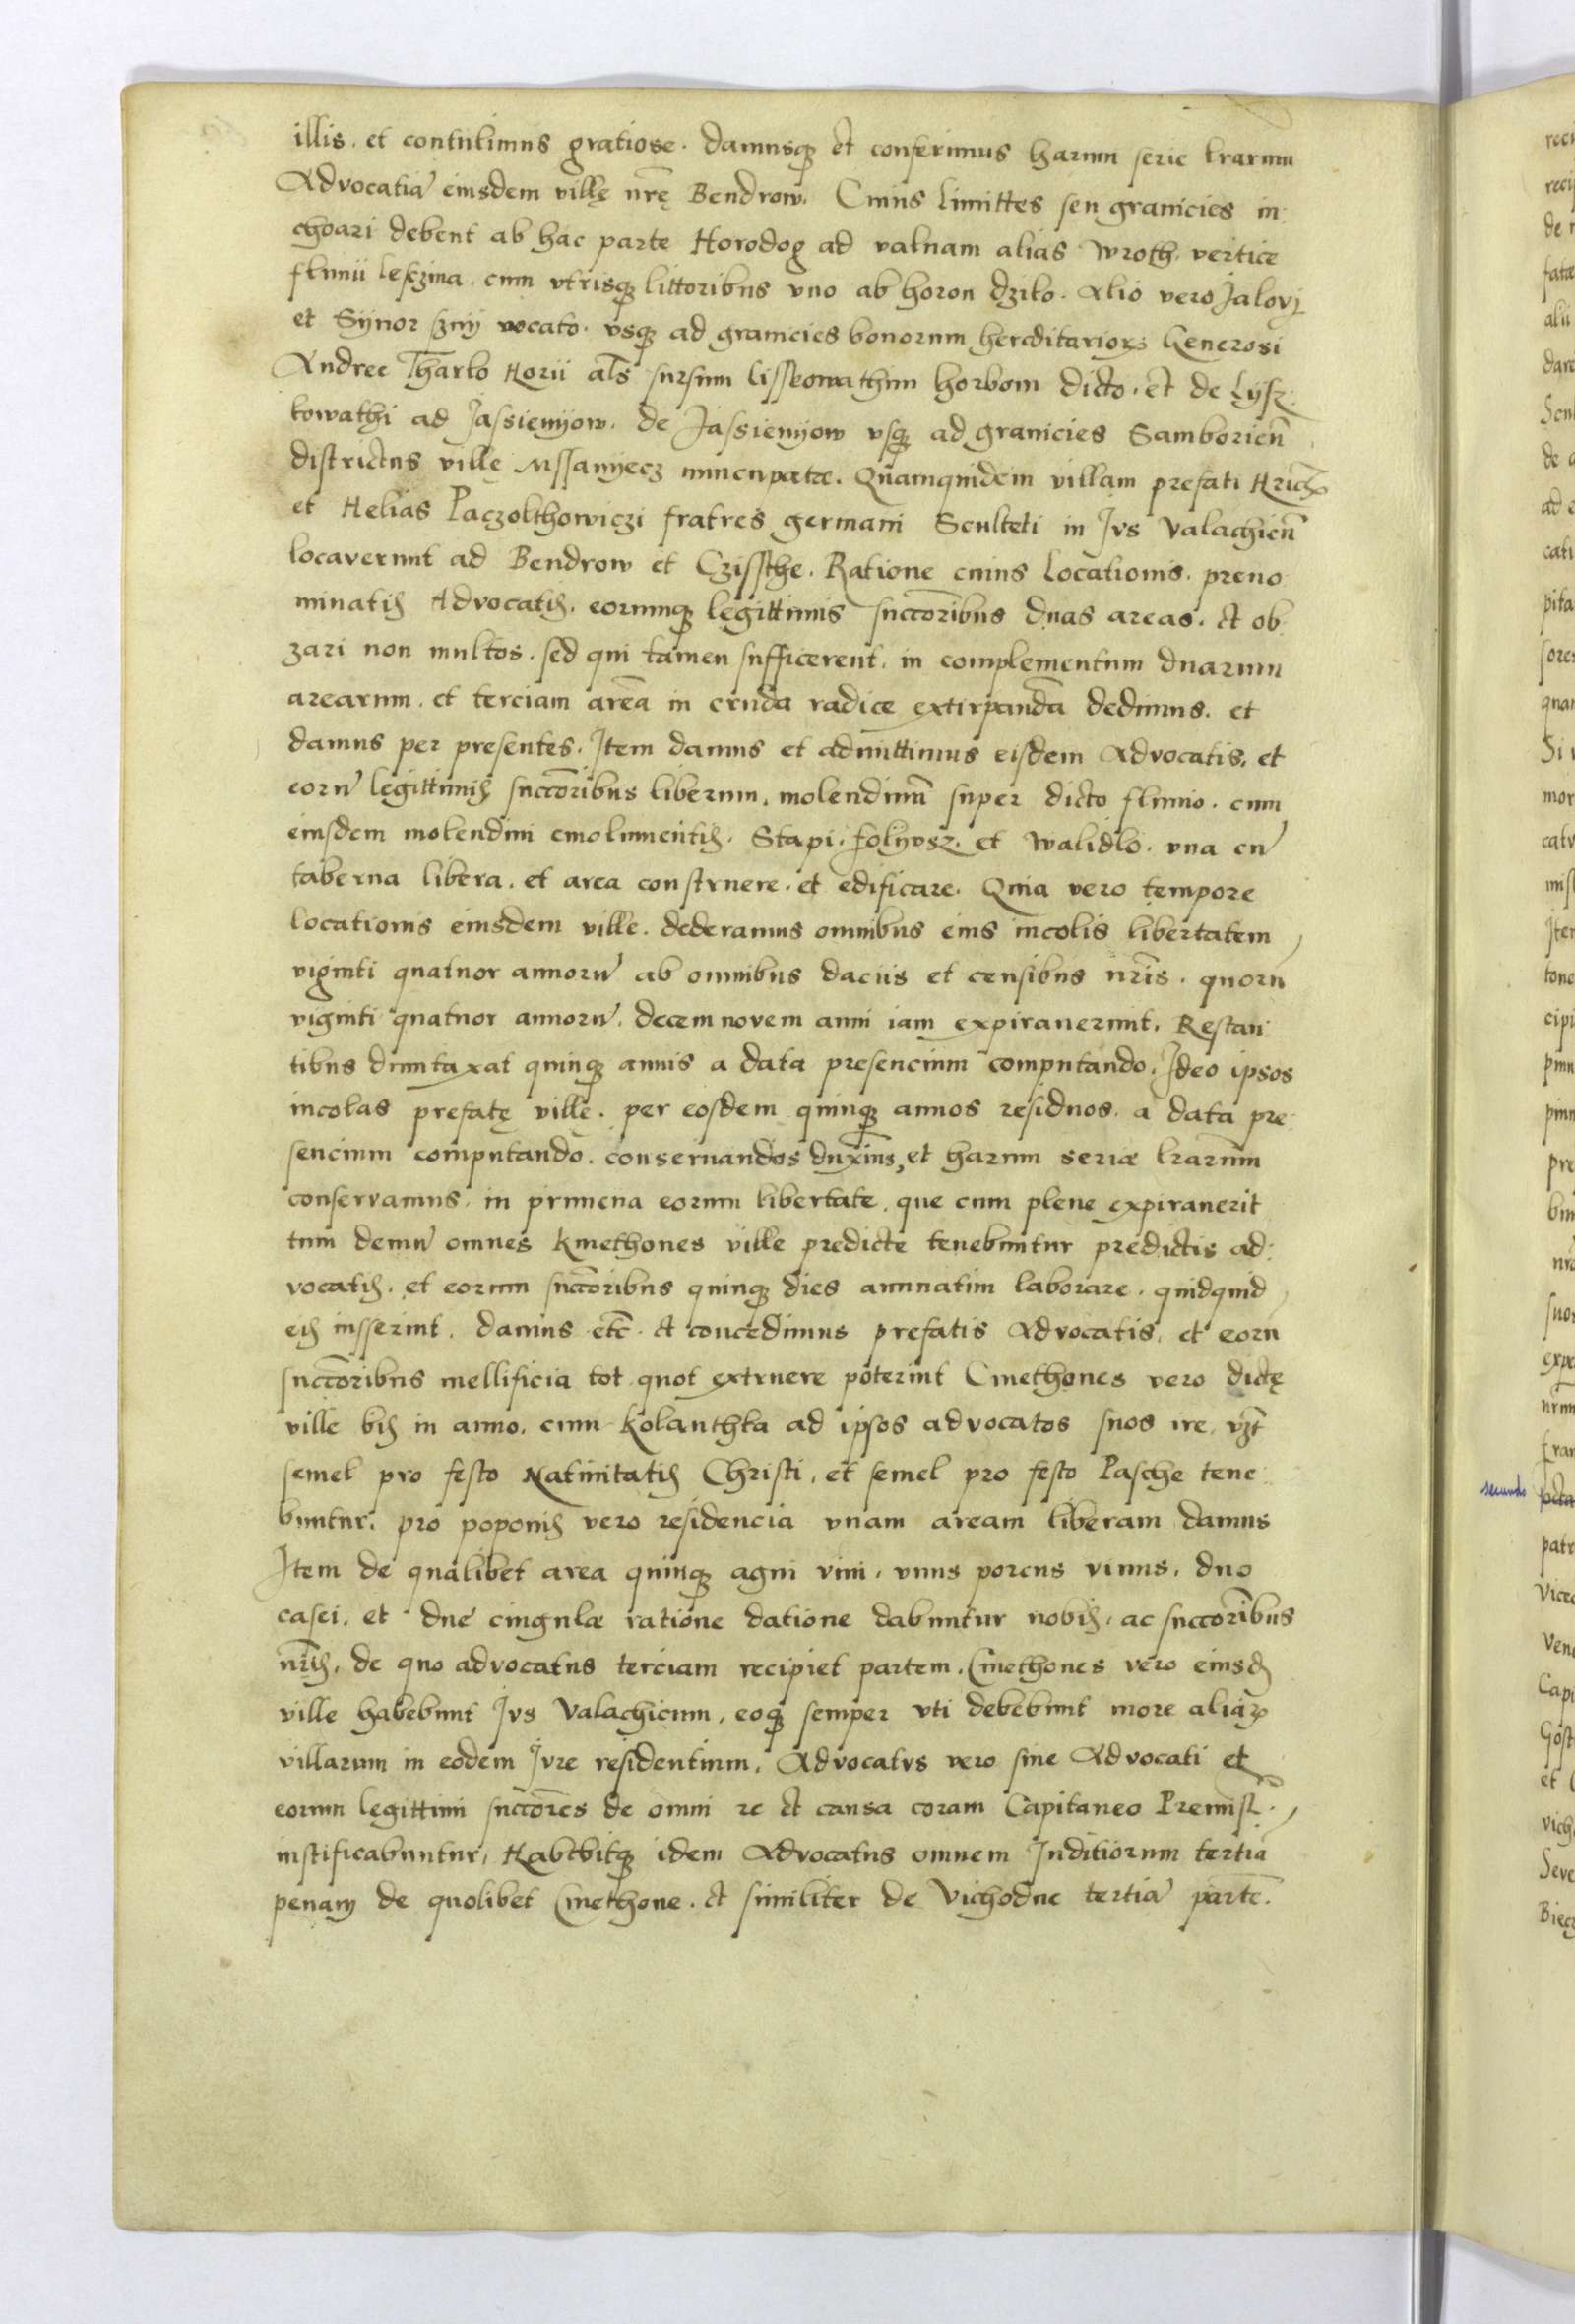 illis. et contulimus gratiose. damusq; et conferimus harum serie lrarum
Advocatiā eiusdem villę nrę Bendrow. Cuius limittes seu granicies in:
choari debent ab hac parte Horodog ad valuam alias wroth. vertice
fluuii leszina. cum vtrisq; littoribus vno ab horon dzilo. Alio vero Jalovj
et Synor szny vocato. vsq; ad granicies bonorum hereditarioꝝ Generosi
Andree Tharlo Horii als sursum lisskowathym horbom dicto. et de Lysz:
kowathi ad Jassienyow. de Jassienyow vsq; ad granicies Samborień
districtus villę Mssanyecz nuncupatæ. Quamquidem villam prefati Hricz
et Helias Paczolthowiczi fratres germani Sculteti in Jvs Valachicń
locaverunt ad Bendrow et Czissthe. Ratione cuius locationis. preno
minatis Advocatis. eorumq; legittimis succoribus duas areas. et ob
zari non multos. sed qui tamen sufficerent. in complementum duarum
arearum. et terciam areā in cruda radice extirpandā dedimus. et
damus per presentes. Item damus et admittimus eisdem Advocatis, et
eorū legittimis succoribus liberum. molendinū super dicto fluuio. cum
eiusdem molendini emolumentis. Stapi. folyvsz. et walidlo. vna cū
taberna libera. et area construere. et edificare. Quia vero tempore
locationis eiusdem ville. dederamus omnibus eius incolis libertatem
viginti quatuor annorū ab omnibus daciis et censibus nris. quorū
viginti quatuor annorū. decem novem anni iam expirauerunt. Restan
tibus duntaxat quinq; annis a data presencium computando. Ideo ipsos
incolas prefatę villę. per eosdem quinq; annos residuos. a data pre
sencium computando. conseruandos duximus, et harum seriæ lrarum
conservamus. in primena eorum libertate. que cum plene expirauerit
tum demū omnes kmethones ville predicte tenebuntur predictis ad:
vocatis. et eorum succoribus quinq; dies annuatim laborare. quidquid
eis iusserint. damus etc. et concedimus prefatis Advocatis, et eorū
succoribus mellificia tot quot extruere poterint Cmethones vero dictę
ville bis in anno. cum kolanthka ad ipsos advocatos suos ire. vzt
semel pro festo Natiuitatis Christi, et semel pro festo Pasche tene
buntur. pro poponis vero residencia vnam aream liberam damus
Item de qualibet area quinq; agni vini. vnus porcus vinus, duo
casei, et due cingulæ ratione datione dabuntur nobis. ac succoribus
nris, de quo advocatus terciam recipiet partem. Cmethones vero eiusd
ville habebunt Jvs Valachicum, eoq; semper vti debebunt more aliaꝝ
villarum in eodem Jvre residentium. Advocatvs vero siue Advocati et
eorum legittimi succores de omni re et causa coram Capitaneo Premisl.
iustificabuntur, Habebitq; idem Advocatus omnem Juditiorum tertiā
penam de quolibet Cmethone. et similiter de Vichodne tertiā partē.
secundo